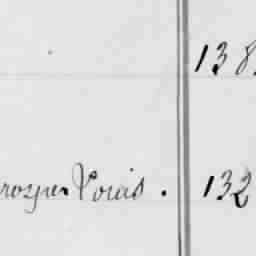 138
royer Louis . 132